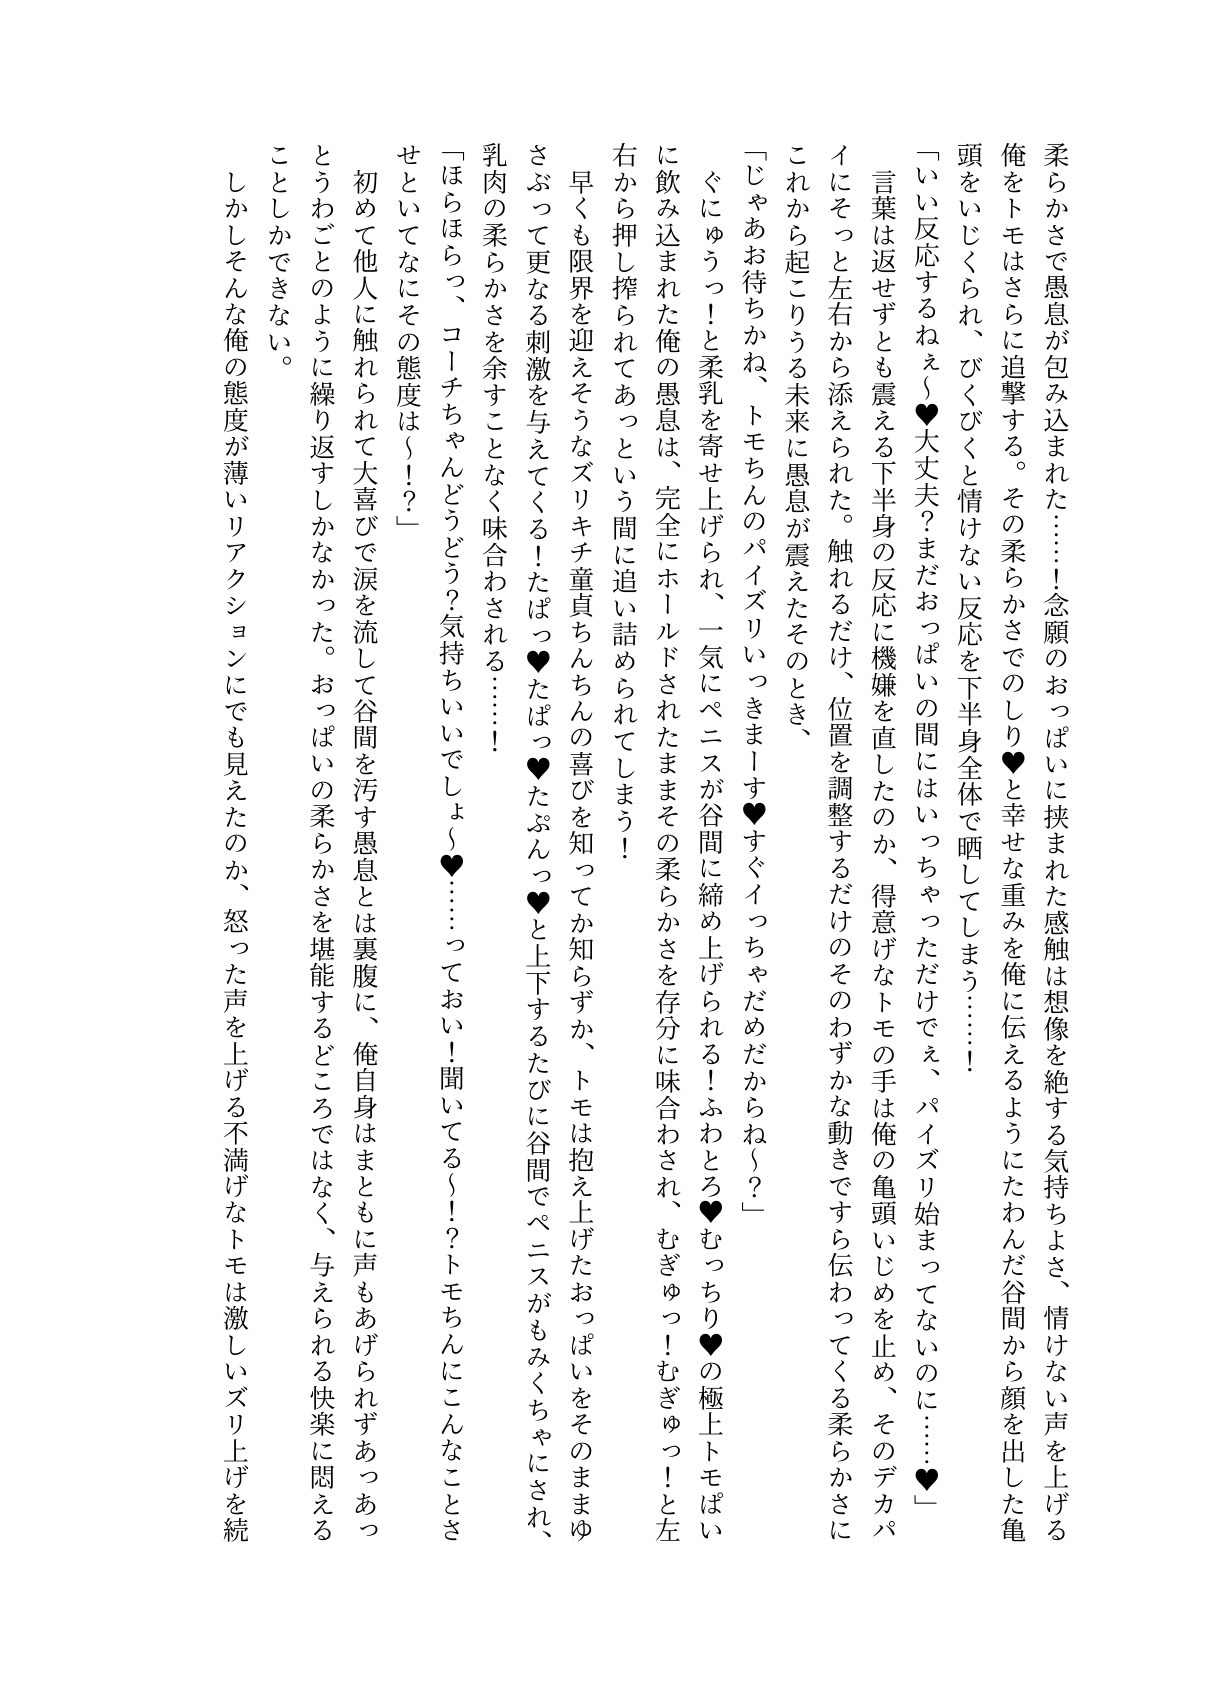 柔らかさで愚息が包み込まれた……！念願のおっぱいに挟まれた感触は想像を絶する気持ちよさ、情けない声を上げる
俺をトモはさらに追撃する。その柔らかさでのしり♥と幸せな重みを俺に伝えるようにたわんだ谷間から顔を出した亀
頭をいじくられ、びくびくと情けない反応を下半身全体で晒してしまう……！
「いい反応するねぇ～♥大丈夫？まだおっぱいの間にはいっちゃっただけでぇ、パイズリ始まってないのに……♥」
　言葉は返せずとも震える下半身の反応に機嫌を直したのか、得意げなトモの手は俺の亀頭いじめを止め、そのデカパ
イにそっと左右から添えられた。触れるだけ、位置を調整するだけのそのわずかな動きですら伝わってくる柔らかさに
これから起こりうる未来に愚息が震えたそのとき、
「じゃあお待ちかね、トモちんのパイズリいっきまーす♥すぐイっちゃだめだからね～？」
　ぐにゅうっ！と柔乳を寄せ上げられ、一気にペニスが谷間に締め上げられる！ふわとろ♥むっちり♥の極上トモぱい
に飲み込まれた俺の愚息は、完全にホールドされたままその柔らかさを存分に味合わされ、むぎゅっ！むぎゅっ！と左
右から押し搾られてあっという間に追い詰められてしまう！
　早くも限界を迎えそうなズリキチ童貞ちんちんの喜びを知ってか知らずか、トモは抱え上げたおっぱいをそのままゆ
さぶって更なる刺激を与えてくる！たぱっ♥たぱっ♥たぷんっ♥と上下するたびに谷間でペニスがもみくちゃにされ、
乳肉の柔らかさを余すことなく味合わされる……！
「ほらほらっ、コーチちゃんどうどう？気持ちいいでしょ～♥……っておい！聞いてる～！？トモちんにこんなことさ
せといてなにその態度は～！？」
　初めて他人に触れられて大喜びで涙を流して谷間を汚す愚息とは裏腹に、俺自身はまともに声もあげられずあっあっ
とうわごとのように繰り返すしかなかった。おっぱいの柔らかさを堪能するどころではなく、与えられる快楽に悶える
ことしかできない。
　しかしそんな俺の態度が薄いリアクションにでも見えたのか、怒った声を上げる不満げなトモは激しいズリ上げを続